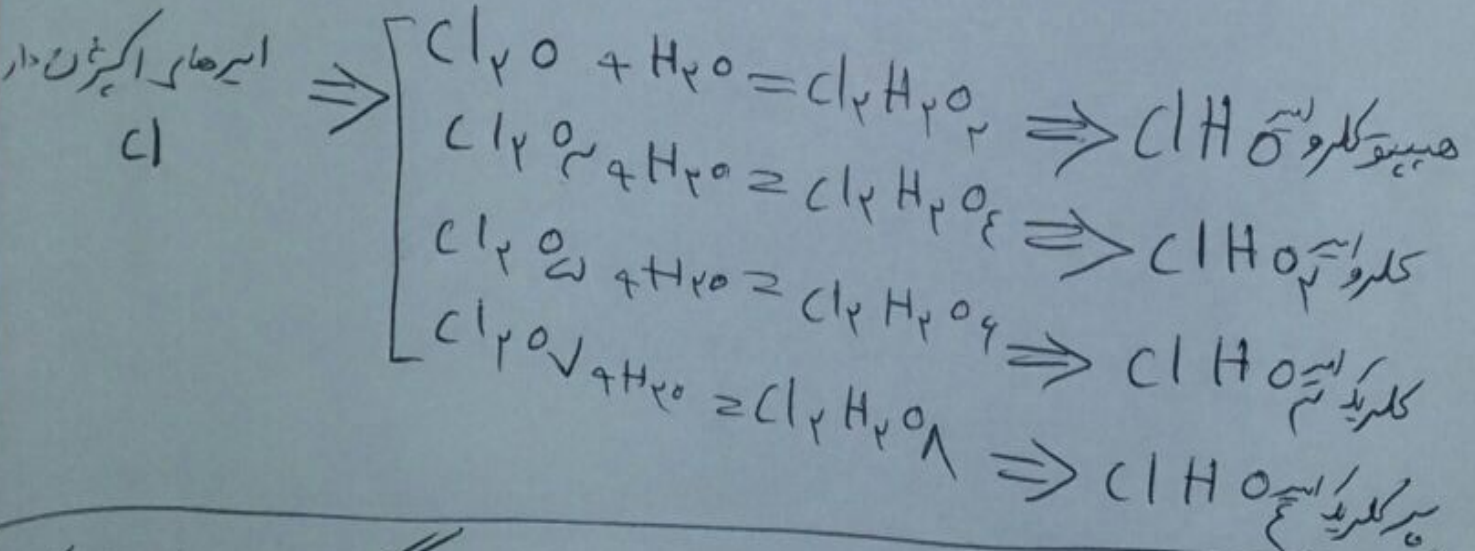 اسیدهای اکسیژن دار
Cl
⇒
Cl۲O + H۲O = Cl۲H۲O۲ ⇒ ClHO هیپوکلرو اسید
Cl۲O۳ + H۲O = Cl۲H۲O۴ ⇒ ClHO۲ کلرو اسید
Cl۲O۵ + H۲O = Cl۲H۲O۶ ⇒ ClHO۳ کلریک اسید
Cl۲O۷ + H۲O = Cl۲H۲O۸ ⇒ ClHO۴ پرکلریک اسید